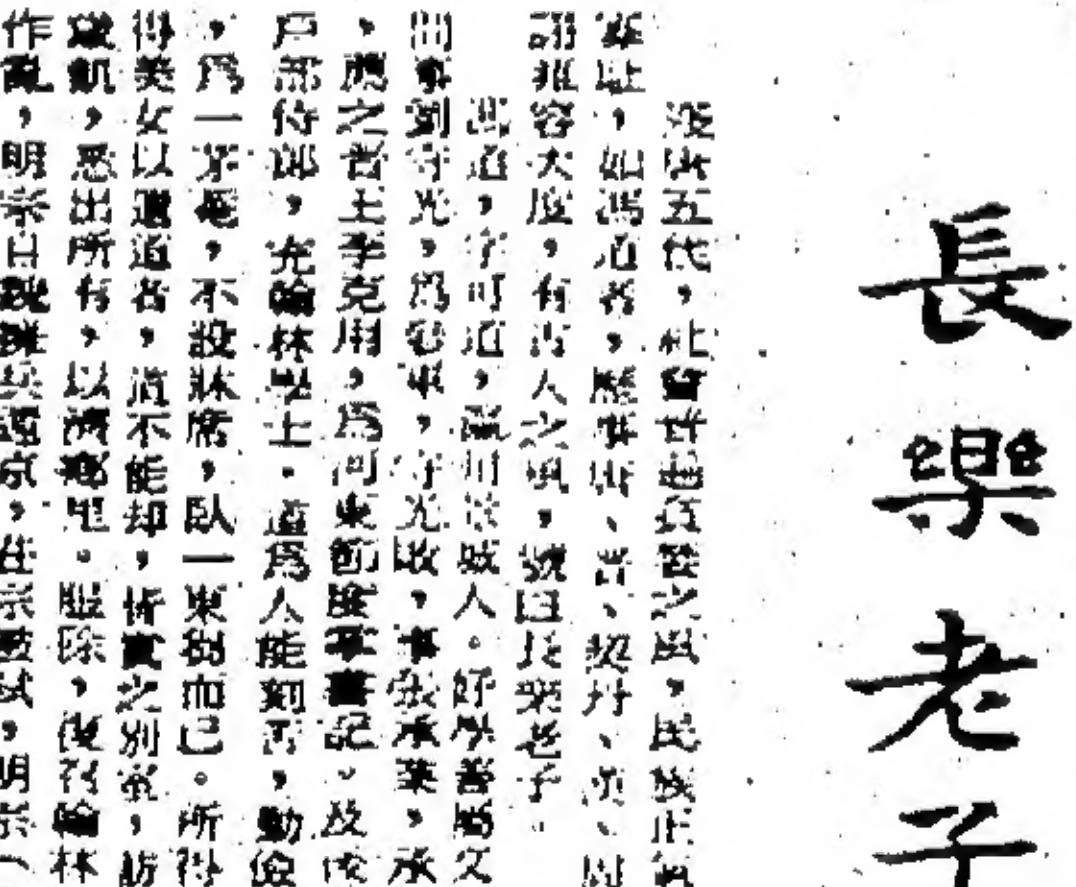 長樂老子
五代，社會，民族正氣
，如馮道者，歷事唐、晉、契丹、漢、周
容大度，有古人之風，號曰長樂老子。
馮道，字可道，瀛州景城人。好學善屬文
間事劉守光，為參軍，守光敗，事張承業，承
，應之晉王李克用，為河東節度掌書記。及
戶部侍郎，充翰林學士。道為人能刻苦，勤儉
，為一茅菴，不設牀席，臥一束芻而已。所得
得美女以遺道者，道不能却，寘之別室，訪
歲飢，悉出所有，以濟鄉里。服除，復召翰林
作亂，明宗自魏擁兵還京，莊宗被弒，明宗（